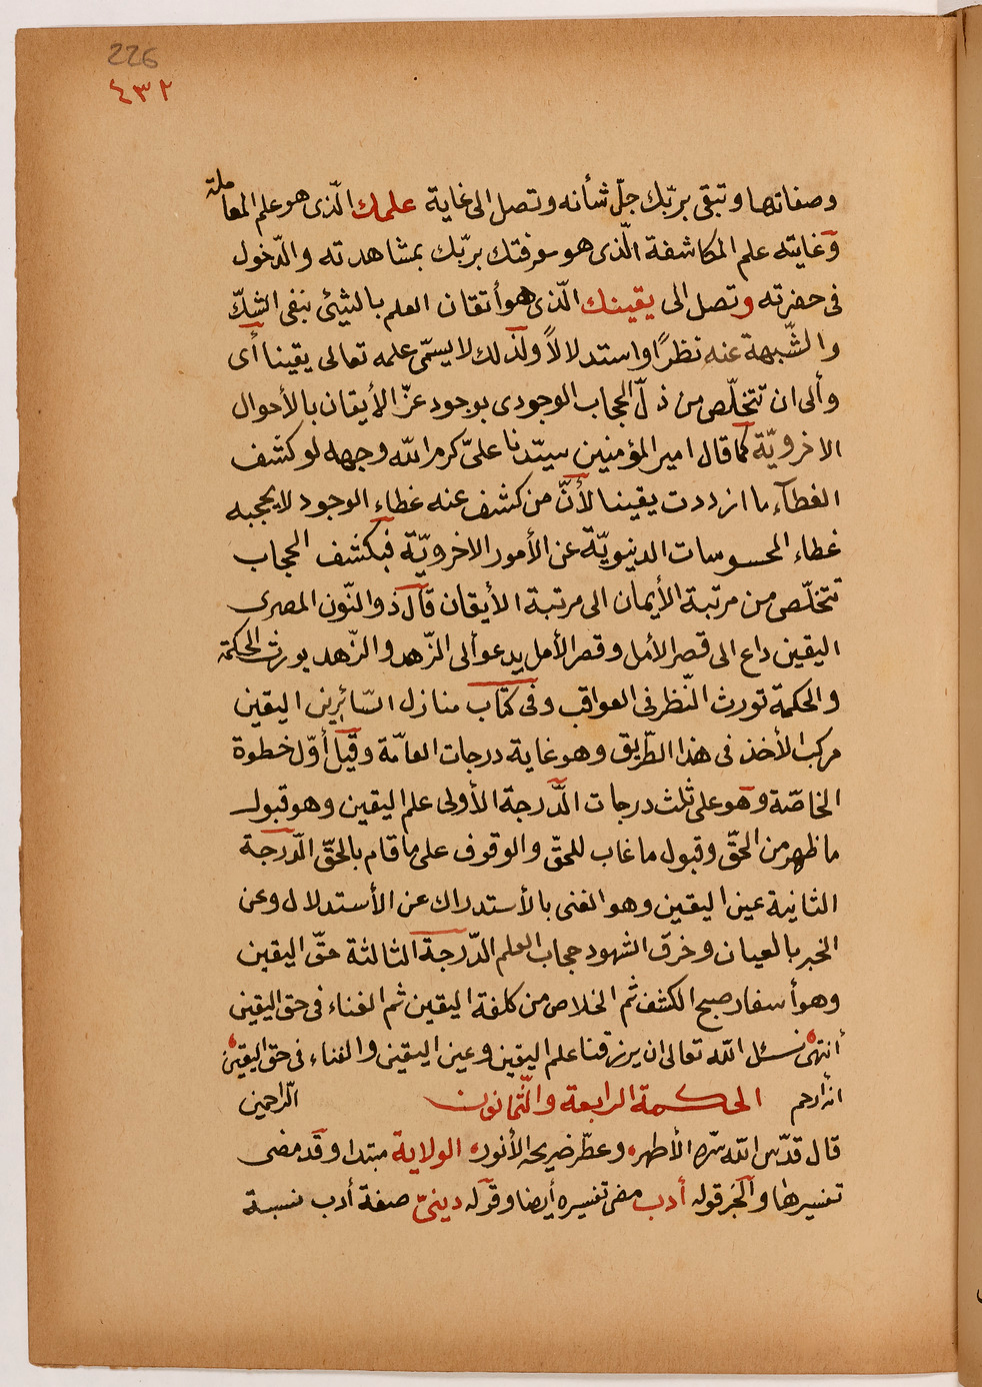 226
٤٣٢
وصفاتها وتبقى بربّك جلّ شأنه وتصل الى غاية علمك الّذى هو علم المعاملة
وغايته علم المكاشفة الّذى هو معرفتك بربّك بمشاهدته والدّخول
فى حضرته وتصل الى يقينك الّذى هو أتقان العلم بالشيئ بنفى الشكّ
والشّبهة عنه نظرًا واستدلالاً ولذلك لا يسمّى علمه تعالى يقينا أى
وألى ان تتخلّص من ذلّ الحجاب الوجودى بوجود عزّ الأيقان بالأحوال
الاخرويّة كما قال امير المؤمنين سيّدنا علىّ كرم اللّه وجهه لو كشف
الغطآء ما ازددت يقينا لأنّ من كشف عنه غطاء الوجود لا يحجبه
غطاء المحسوسات الدنيويّة عن الأمور الاخرويّة فبكشف الحجاب
تتخلّص من مرتبة الأيمان الى مرتبة الأيقان قال ذو النّون المصرى
اليقين داع الى قصر الأمل وقصر الأمل يدعو ألى الزّهد والزّهد يورث الحكمة
والحكمة تورث النّظر فى العواقب وفى كتاب منازل السّائرين اليقين
مركب الأخذ فى هذا الطّريق وهو غاية درجات العامّة وقيل أوّل خطوة
الخاصّة وهو على ثلث درجات الدّرجة الأولى علم اليقين وهو قبول
ما ظهر من الحقّ وقبول ما غاب للحقّ والوقوف على ما قام بالحقّ الدّرجة
الثانية عين اليقين وهو الغنى بالأستدراك عن الأستدلال وعن
الخبر بالعيان وخرق الشهود حجاب العلم الدّرجة الثالثة حقّ اليقين
وهو أسفار صبح الكشف ثم الخلاص من كلفة اليقين ثم الفناء فى حق اليقين
أنتهى نسئل اللّه تعالى ان يرزقنا علم اليقين وعين اليقين والفناء فى حق اليقين
انه أرحم الرّاحمين
الحكمة الرابعة والثّمانون
قال قدّس اللّه سرّه الأطهر وعطّر ضريحه الأنور الولاية مبتدا وقد مضى
تفسيرها والخبر قوله أدب مضى تفسيره أيضا وقوله دينىّ صفة أدب نسبة